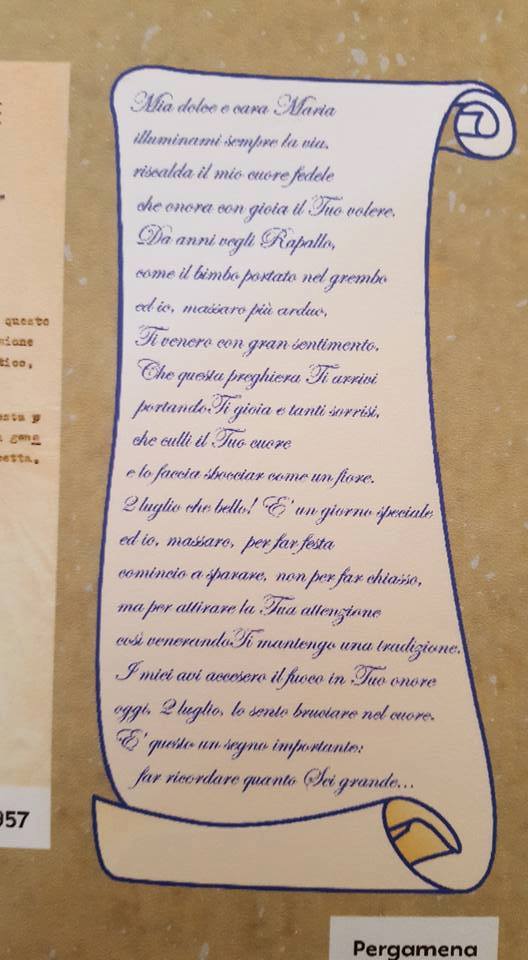 Mia dolce e cara Maria
illuminami sempre la via,
riscalda il mio cuore fedele
che onora con gioia il Tuo volere.
Da anni vegli Rapallo,
come il bimbo portato nel grembo
ed io, massaro più arduo,
Ti venero con gran sentimento.
Che questa preghiera Ti arrivi
portandoTi gioia e tanti sorrisi,
che culli il Tuo cuore
e lo faccia sbocciar come un fiore.
2 luglio che bello! E' un giorno speciale
ed io, massaro, per far festa
comincio a sparare, non per far chiasso,
ma per attirare la Tua attenzione
così venerandoTi mantengo una tradizione.
I miei avi accesero il fuoco in Tuo onore
oggi, 2 luglio, lo sento bruciare nel cuore.
E' questo un segno importante:
far ricordare quanto Sei grande...
questo
957
Pergamena